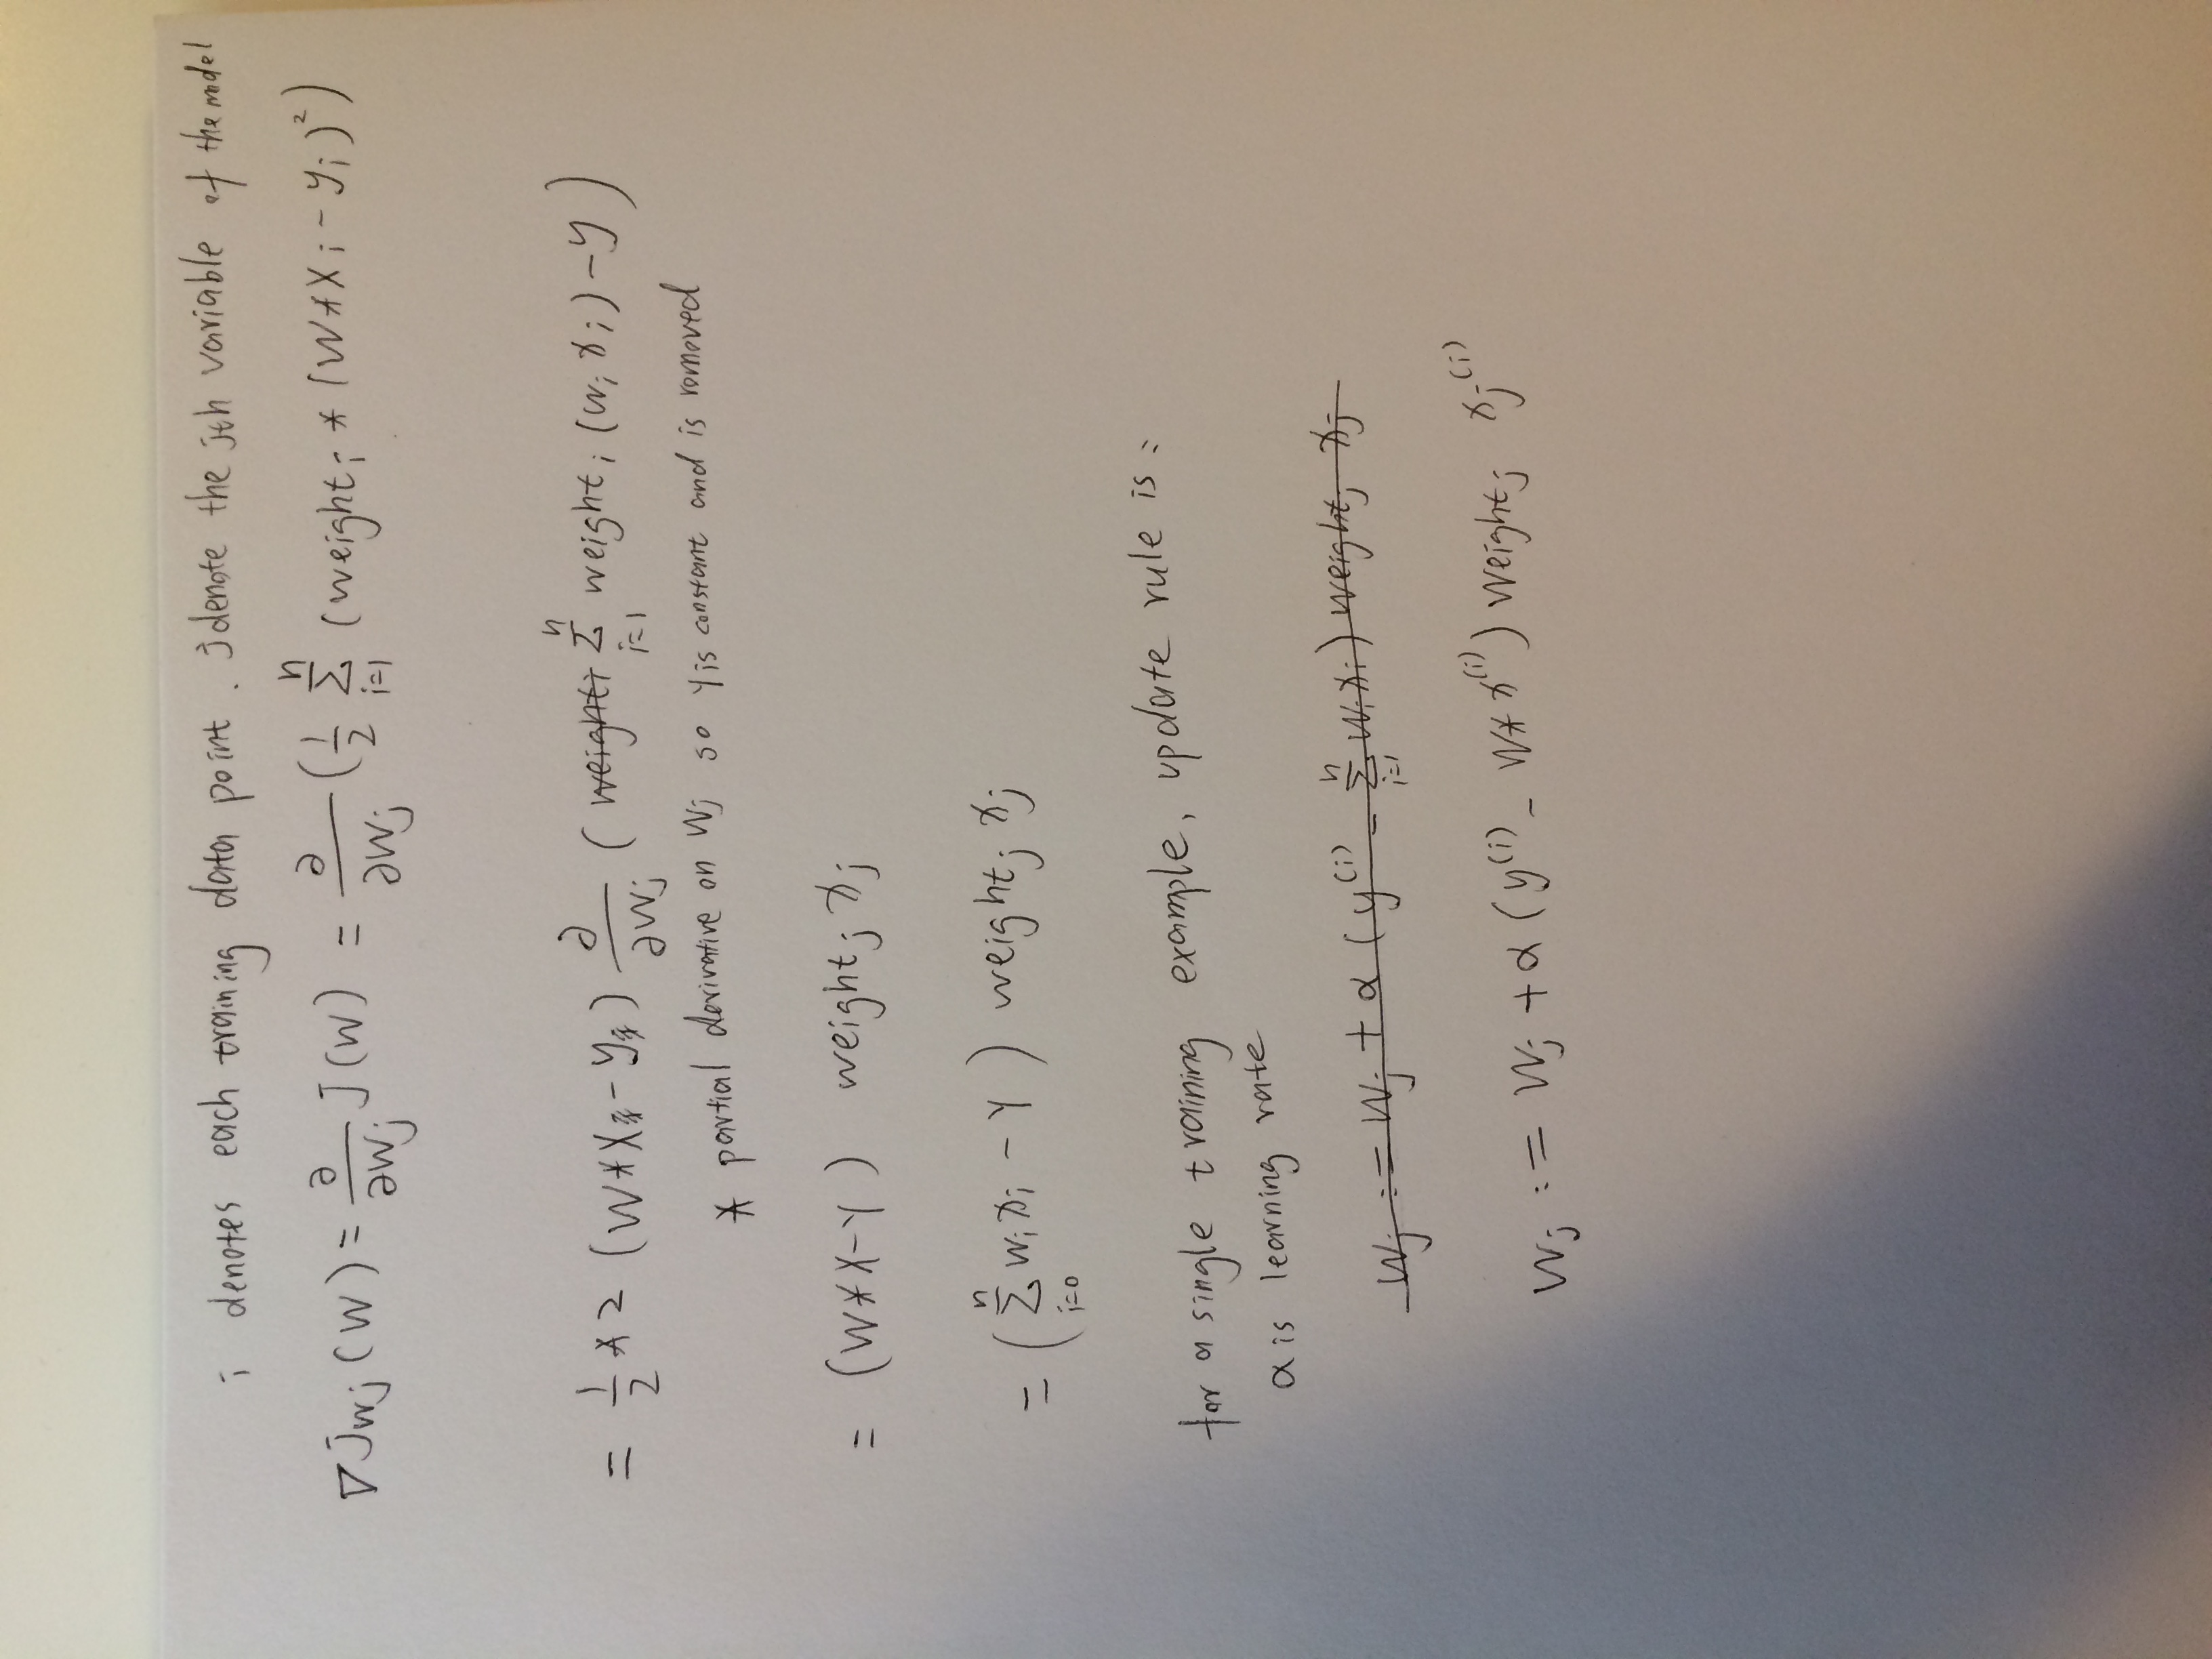 i denotes each training data point. j denote the jth variable of the model
∇J_{wj}(W) = ∂/∂W_j J(W) = ∂/∂W_j (1/2 Σ_{i=1}^{n} (weight_i * (W*X_i - y_i)^2)
= 1/2 * 2 (W*X - y) ∂/∂W_j ( ~~weight_i~~ Σ_{i=1}^{n} weight_i (w_i x_i) - y )
* partial derivative on W_j so Y is constant and is romoved
= (W*X-Y) weight_j x_j
= ( Σ_{i=0}^{n} w_i x_i - Y ) weight_j x_j
for a single training example, update rule is :
α is learning rate
~~W_j := W_j + α (y^{(i)} - Σ_{i=1}^{n} w_i x_i) weight_j x_j~~
W_j := W_j + α (y^{(i)} - W* x^{(i)}) weight_j x_j^{(i)}